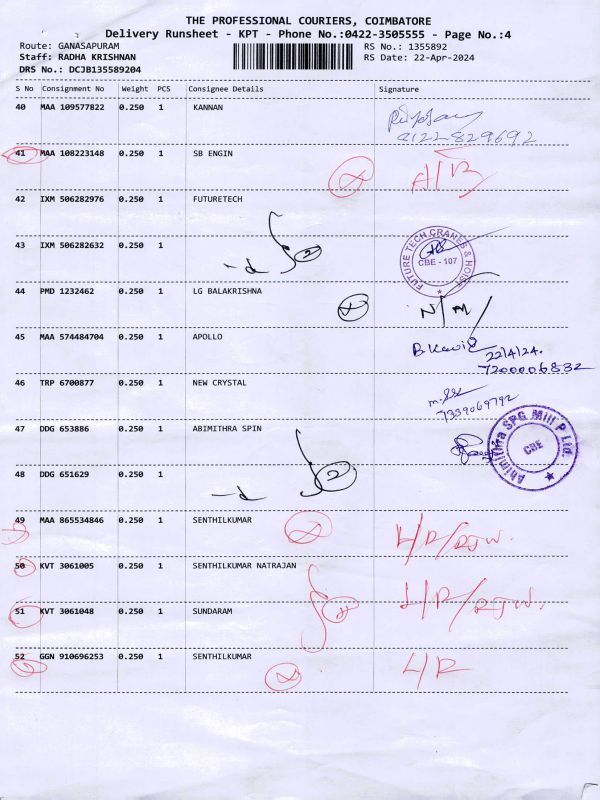 THE PROFESSIONAL COURIERS, COIMBATORE
Delivery Runsheet - KPT - Phone No.:0422-3505555 - Page No.:4
Route: GANASAPURAM RS No.: 1355892
Staff: RADHA KRISHNAN RS Date: 22-Apr-2024
DRS No.: DCJB135589204
S No Consignment No Weight PCS Consignee Details Signature
40 MAA 109577822 0.250 1 KANNAN
9122829692
41 MAA 108223148 0.250 1 SB ENGIN
A/B
42 IXM 506282976 0.250 1 FUTURETECH
FUTURE TECH CRANES & HOIST
CBE - 107
43 IXM 506282632 0.250 1
-d 2
44 PMD 1232462 0.250 1 LG BALAKRISHNA
N/M
45 MAA 574484704 0.250 1 APOLLO
22/4/24.
7200006832
46 TRP 6700877 0.250 1 NEW CRYSTAL
7339069792
47 DDG 653886 0.250 1 ABIMITHRA SPIN
Abimithra SPG Mill P Ltd.
CBE
48 DDG 651629 0.250 1
-d 2
49 MAA 865534846 0.250 1 SENTHILKUMAR
50 KVT 3061005 0.250 1 SENTHILKUMAR NATRAJAN
51 KVT 3061048 0.250 1 SUNDARAM
52 GGN 910696253 0.250 1 SENTHILKUMAR
L/R